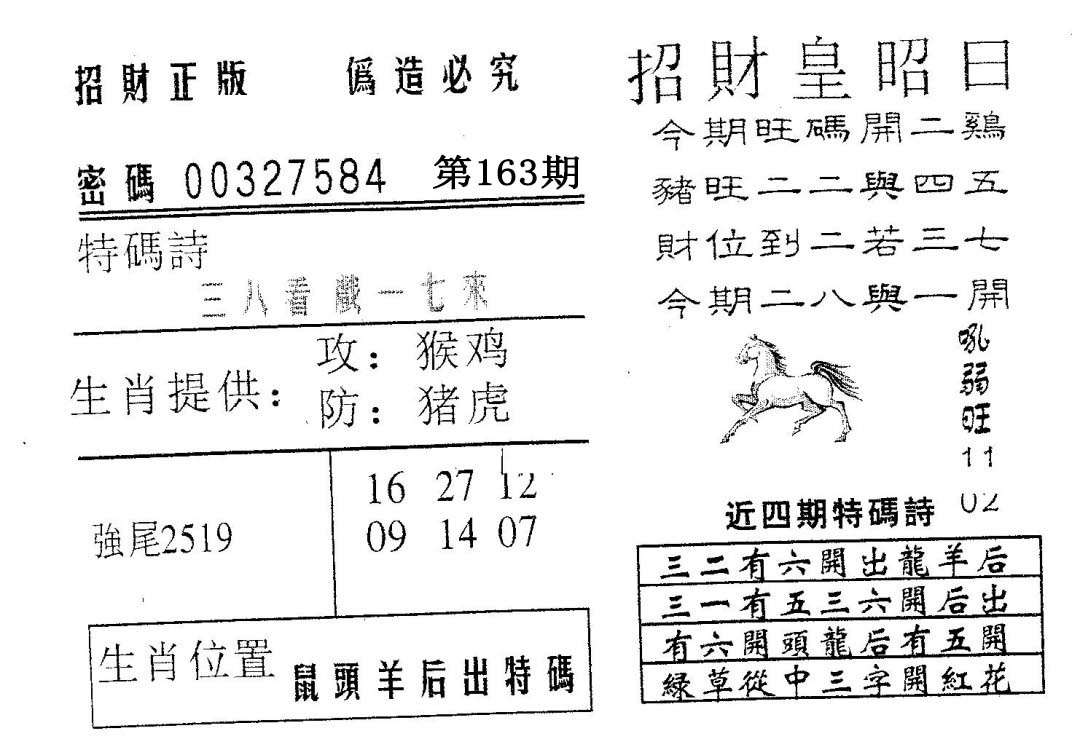 招財正版 僞造必究
密碼 00327584 第163期
特碼詩
三八看戲一七來
生肖提供：
攻：猴鸡
防：猪虎
強尾2519
16 27 12
09 14 07
生肖位置 鼠頭羊后出特碼
招財皇昭日
今期旺碼開二鷄
豬旺二二與四五
財位到二若三七
今期二八與一開
吼弱旺
11
02
近四期特碼詩
三二有六開出龍羊后
三一有五三六開后出
有六開頭龍后有五開
緑草從中三字開紅花